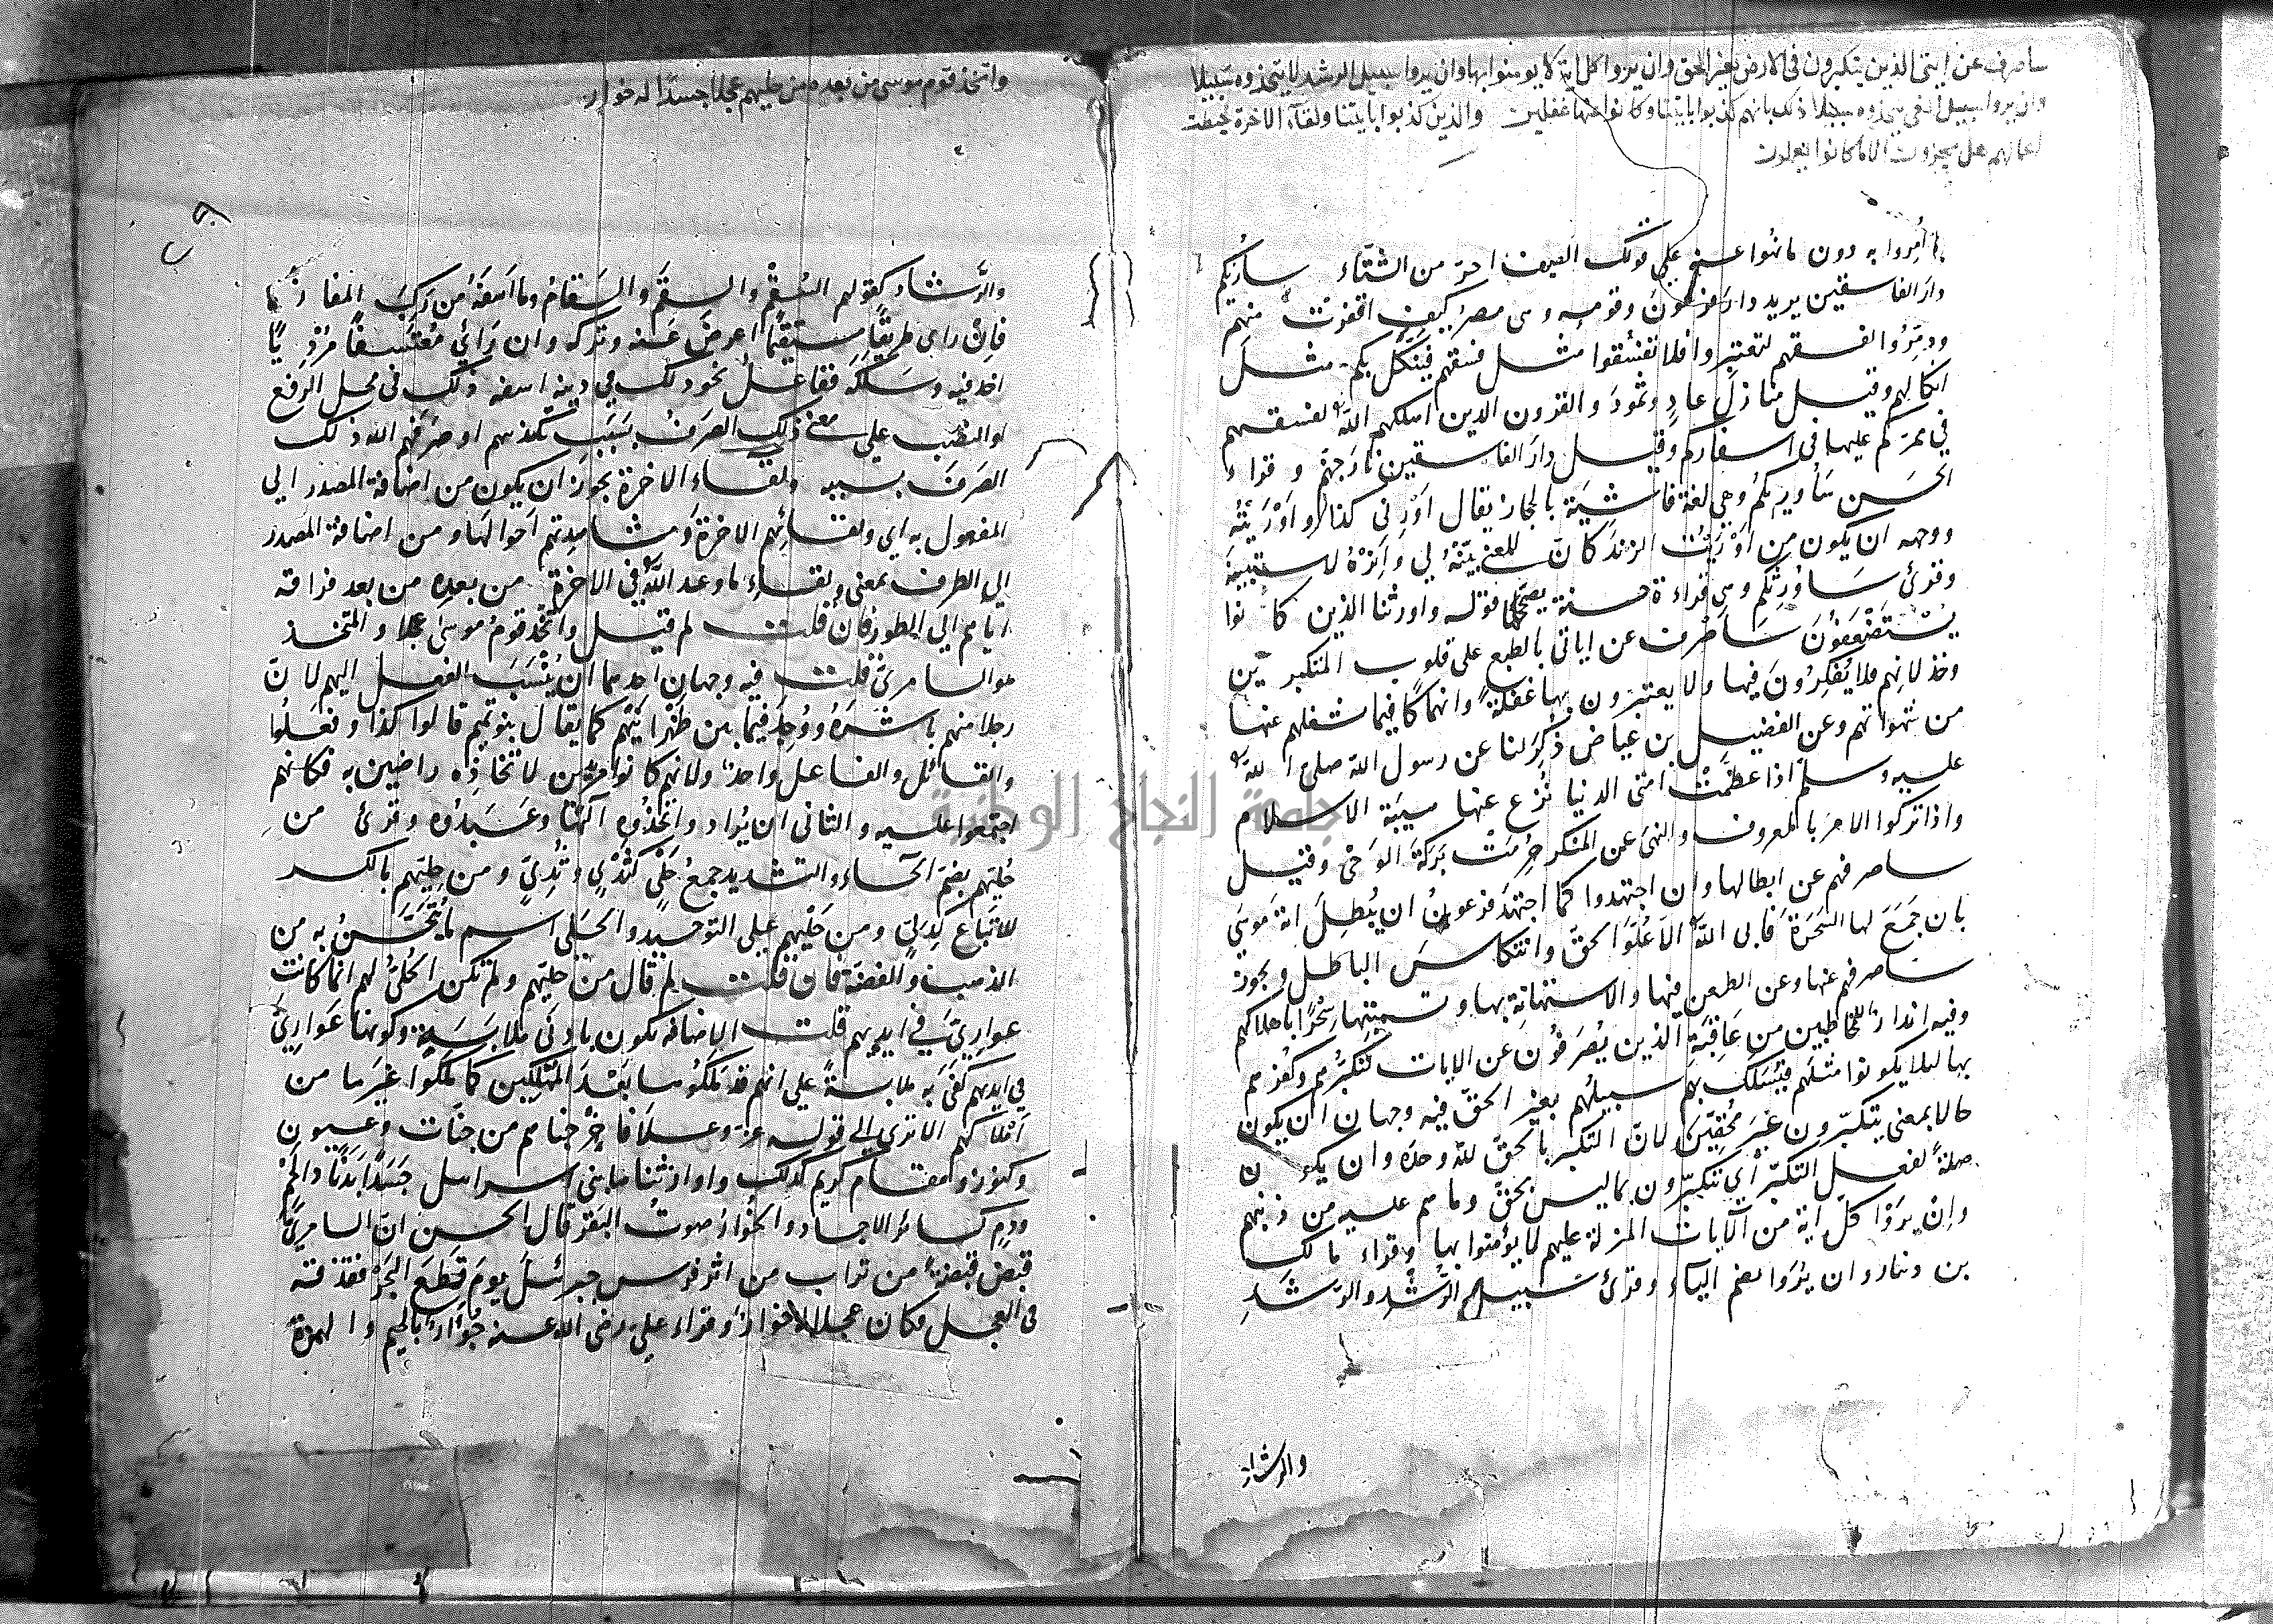 سأصرف عن ايتى الذين يتكبرون فى الارض بغير الحق وان يروا كل اية لا يومنوا بها وان يروا سبيل الرشد لا يتخذوه سبيلا
وان يروا سبيل الغى يتخذوه سبيلا ذلك بانهم كذبوا بايتنا وكانوا عنها غفلين والذين كذبوا بايتنا ولقآء الاخرة حبطت
اعمالهم هل يجزون الا ما كانوا يعملون
ما أُمِروا به دون ما نهوا عنه على قولك الصيف احرّ من الشتآء سأريكم
دارَ الفاسقين يريد دارَ فرعونَ وقومِه وهى مصرُ كيف اقفرت منهم
ودمّروا لفسقهم لتعتبروا فلا تفسُقوا مثل فسقهم فيُنَكِّل بكم مثلَ
نكالهم وقيل منازلَ عادٍ وثمودَ والقرون الذين اهلكهم الله لفسقهم
في ممرّكم عليها فى اسفاركم وقيل دارَ الفاسقين نارَ جهنّم وقراء
الحسن سَأُوريكُم وهي لغة فاشيَة بالحجاز يقال اَوْرِنى كذا واَوْرَيتُه
ووجهه ان يكون من اَوْرَيْتُ الزند كانّ المعنى بَيِّنْهُ لي وأَنِرْهُ لاستبينَه
وقرئ سَاُورِثكم وهى قراءة حسنة يصحّحها قوله واورثنا الذين كانوا
يُستَضعَفُونَ ساَصْرف عن اياتى بالطبع على قلوب المتكبرين
وخذلانِهم فلا يُفَكِرُونَ فيها ولا يعتبرون بها غفلةً وانهماكًا فيما شغلهم عنها
من شهواتهم وعن الفضيل بن عياض ذُكِرَ لنا عن رسول الله صلى الله
عليه وسلم اذا عظمَتْ امتى الدنيا نُزع عنها هيبَة الاسلام
واذا تركوا الامرَ بالمعروف والنهيَ عن المنكر حُرِمَتْ بَرَكَة الوَحْى وقيل
ساصرفهم عن ابطالها وان اجتهدوا كما اجتهدَ فرعونُ ان يُبْطِلَ اية مُوسَى
بان جَمَعَ لها السَحَرَةَ فابى اللّٰهُ الا عُلُوَّ الحقّ وانتكاسَ الباطل ويجوز
ساصرفهم عنها وعن الطعن فيها والاستهانةِ بها وتسميتها سِحْرًا باهلاكهم
وفيه انذار للمخاطبين من عَاقِبَة الذين يُصْرَفُون عن الايات لتكبّرهم وكفرهم
بها لئلا يكونوا مثلهم فيُسْلَك بهم سبيلُهم بغير الحقّ فيه وجهان ان يكون
حالا بمعنى يتكبّرون غيرَ مُحِقِّين لانّ التكبر بالحقّ للّٰه وحدَه وان يكون
صلةً لفعل التكبّر أي يتكبّرون بما ليس بحقّ وما هم عليه من دينهم
وإنْ يَرَوْا كلّ اية من الآيات المنزلة عليهم لا يؤمنوا بها وقراء مالك
بن دينار وان يُرَوا بضم الياء وقرئ سَبيل الرُشْدِ والرَشَدِ
والرشاد
واتخذ قوم موسى من بعده من حليهم عجلا جسدًا له خوار
والرَّشاد كقولهم السُقْم والسقَم والسَقامُ وما اَسْفَهَ من رَكِبَ المفازةَ
فاِنْ راى طريقًا مستقيمًا اعرضَ عَنه وتركه وان رَائ مُعْتَسَفًا مُرْديًا
اخذ فيه وسَلَكَه ففاعلُ نحو ذلك في دينه اسفه ذلك فى محل الرفع
او النصْب على معنى ذلك الصَرفُ بسَبَب تكذيبهم او صَرَفَهم الله ذلك
الصَرفَ بسببه ولقاء الاخرة يجوز ان يكون من اضافة المصدر الي
المفعول به اي ولقائهم الاخرةَ ومشاهدتهم اَحْوالَها ومن اضافة المصدر
الي الظرف بمعنى ولقاء ما وعد اللّٰه في الاخرة من بعدِه من بعد فراقه
اياهم الي الطور فان قلت لم قيل واتّخذ قومُ موسى عجلا والمتخذ
هو السامرىّ قلت فيه وجهان احدهما ان يُنْسَبَ الفعل اليهم لانّ
رجلا منهم باشَرَهُ ووُجِدَ فيما بين ظَهْرانَيْهم كما يقال بنو تميم قالوا كذا وفعلُوا
والقائل والفاعل واحد ولانهم كانوا مريدين لاتخاذِه راضين به فكانهم
اجتمعوا عليه والثانى ان يُراد واتّخذُوه اَلٰهًا وعَبَدُوْه وقرئ مِن
حُليّهم بضمّ الحاء والتشديد جمعُ حَلْي كثَدْيٍ وثُدِيٍّ ومن حِليّهم بالكسر
للاتباع كدِلِيٍّ ومن حَلْيِهم على التوحيد والحَلى اسم ما يُتَحَسَّنُ به من
الذهب والفضّة فان قلت لم قال من حليّهم ولم تكن الحُلىُّ لهم انما كانت
عوارِىَّ في ايديهم قلت الاضافة تكون بادنَى ملابَسَةٍ وكونها عَوارِيَّ
في ايديهم كَفَى به ملابسةً على انهم قد مَلَكُوها بَعْدَ المهْلَكين كما مَلَكُوا غيرَها من
اَمْلاكهم الا ترى الي قوله عزّ وعلا فاخرَجْناهم من جنّات وعيون
وكنوز ومقام كريم كذلك واورثناها بنى اسرايل جَسَدًا بَدَنًا ذا لحمٍ
ودمٍ كسائر الاجساد والخُوارُ صوتُ البَقَر قال الحسن انّ السامريّ
قبضَ قبْضةً من تراب من اثر فرس جبرئيلَ يومَ قطعَ البَحْرَ فقذفَه
فى العجل فكان عجلا له خوار وقراء عليّ رضى الله عنه جُؤَار بالجيم والهمزة
جامعة النجاح الوطنية